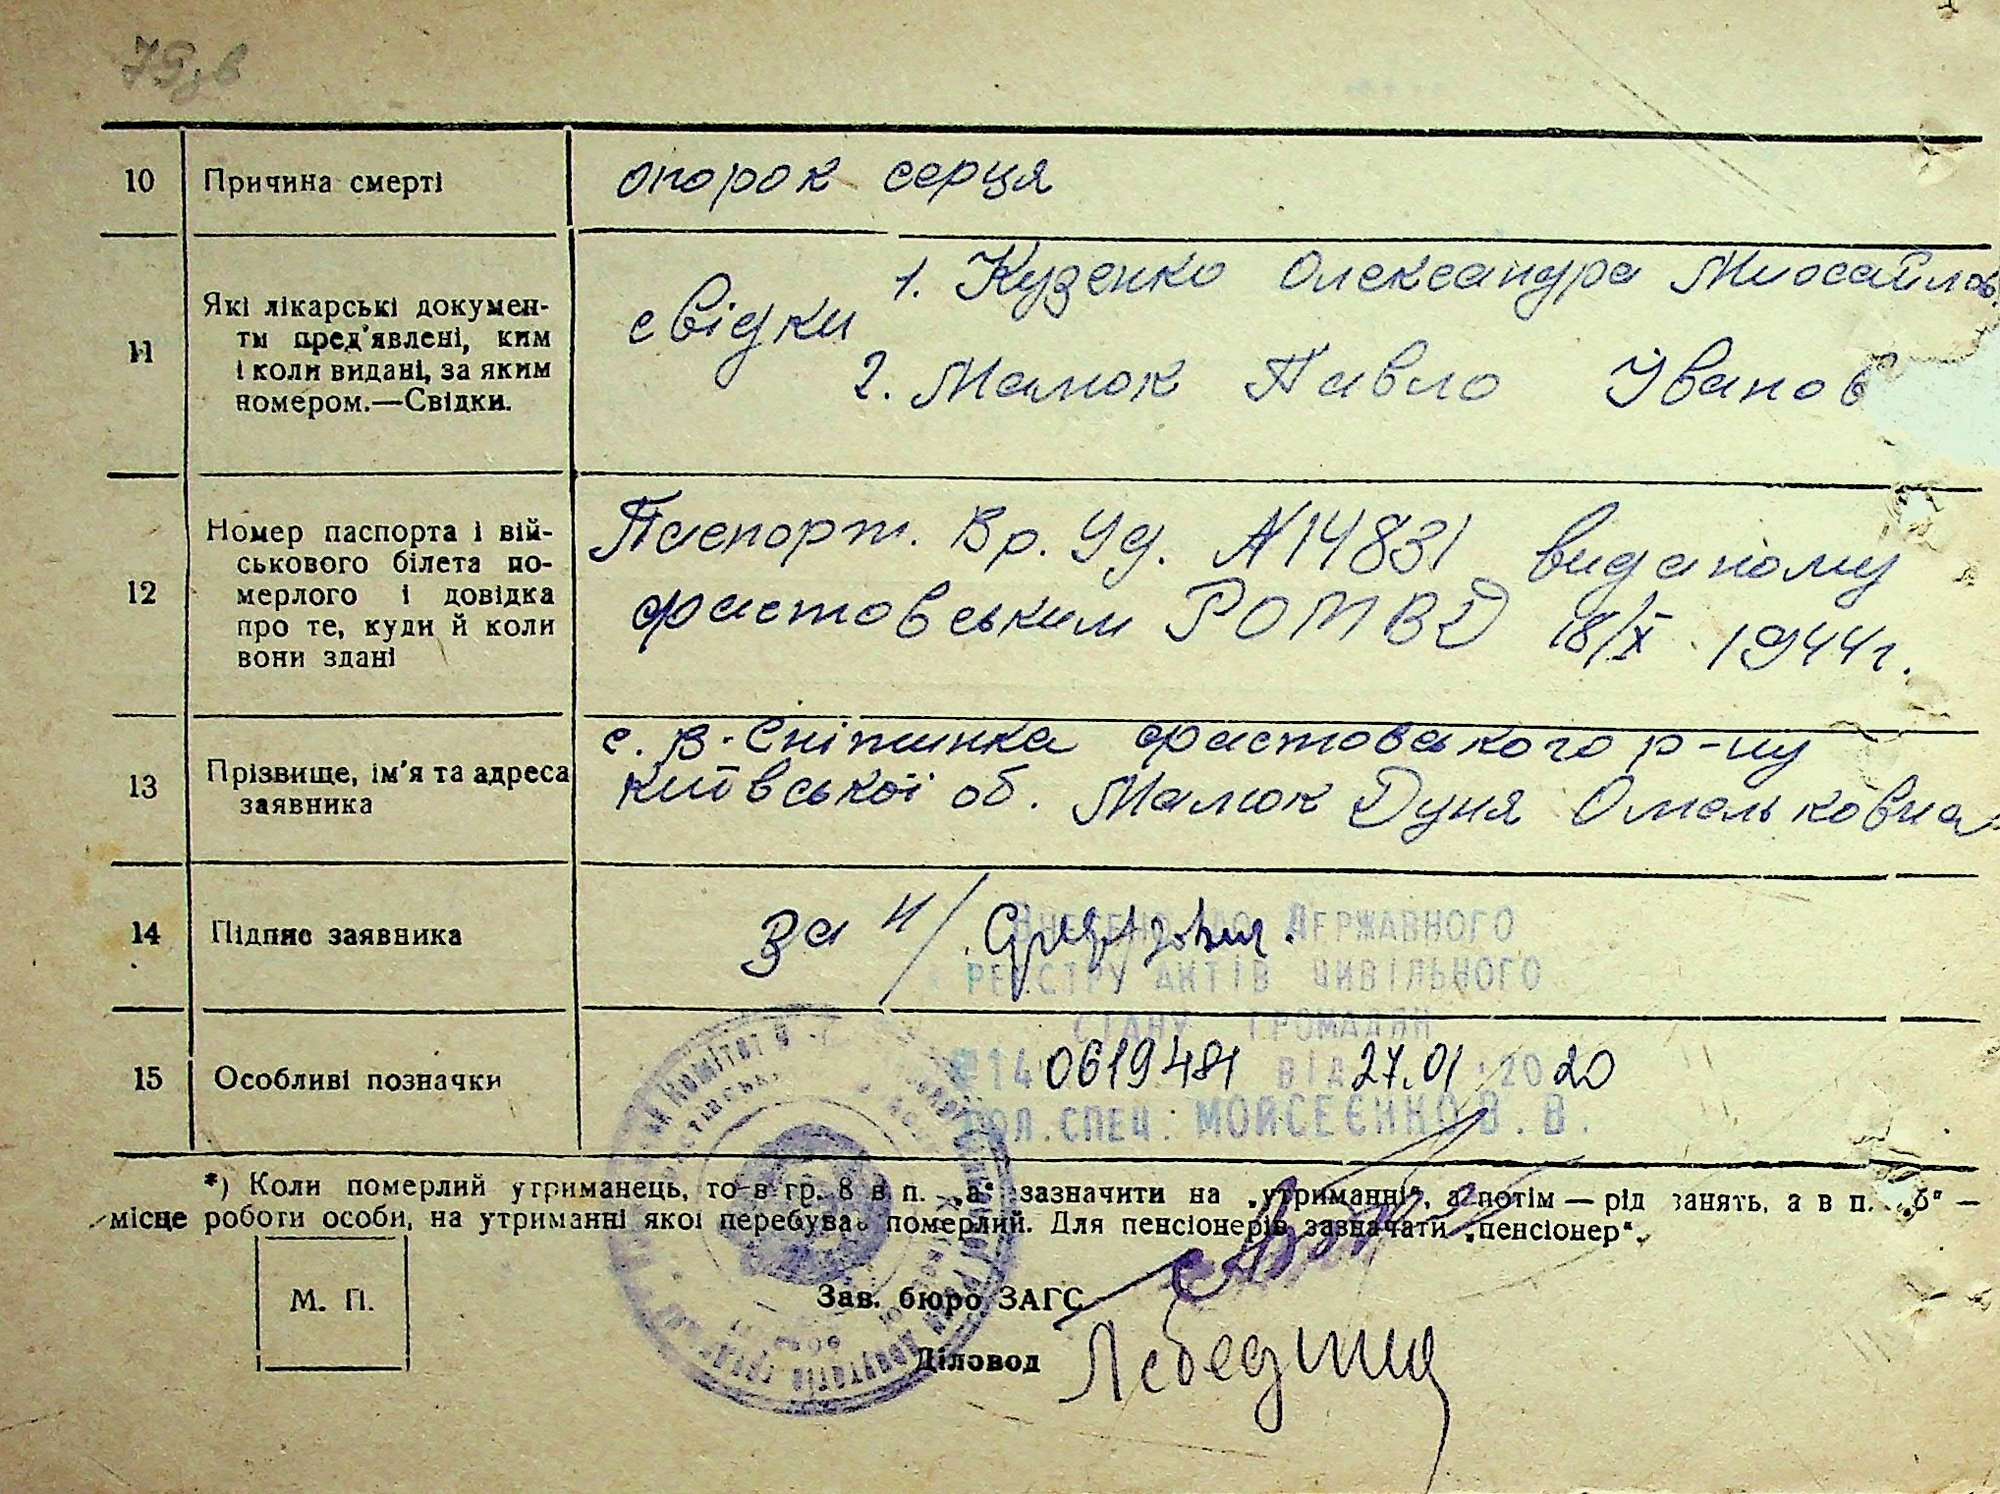 79зв
10 Причина смерті опорок серця
11 Які лікарські докумен-
ти пред'явлені, ким
і коли видані, за яким
номером.—Свідки.
свідки 1. Кузенко Олександра Михайлов
2. Малюк Павло Іванов
12 Номер паспорта і вій-
ськового білета по-
мерлого і довідка
про те, куди й коли
вони здані
Паспорт. Вр. Уд. №14831 виданому
фастовським РОМВД 18/X 1944г.
13 Прізвище, ім'я та адреса
заявника
с. В-Снітинка фастовського р-ну
київської об. Малюк Дуня Омельковна
14 Підпис заявника За н/
Внесено до Державного
реєстру актів цивільного
стану громадян
№140619481 від 27.01.2020
пол. спец: Мойсеєнко В.В.
15 Особливі позначки
*) Коли померлий утриманець, то в гр. 8 в п. „а“ зазначити на „утриманні“, а потім — рід занять, а в п. „б“ —
місце роботи особи, на утриманні якої перебував померлий. Для пенсіонерів зазначати „пенсіонер“.
М. П.
Зав. бюро ЗАГС
Діловод Лебедина